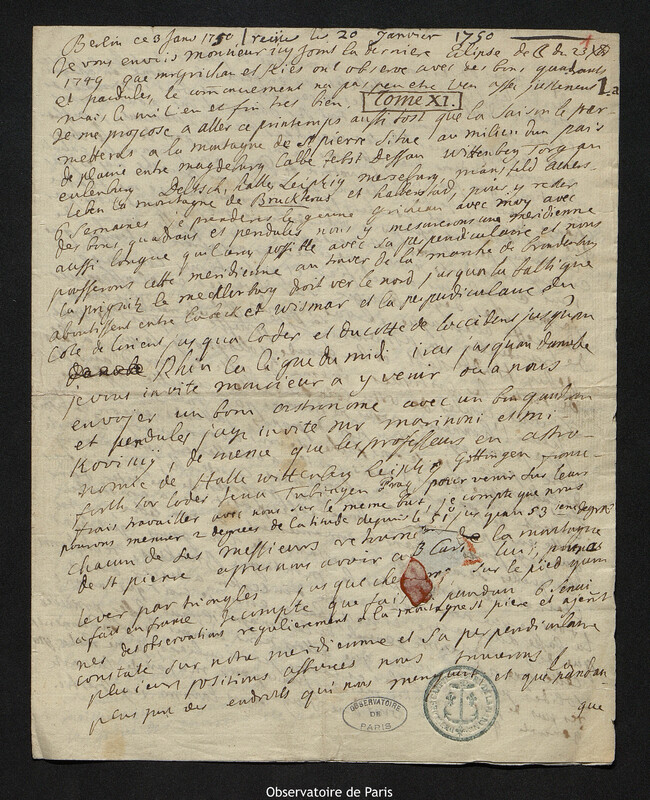 Berlin ce 3 Janv 1750 / recue le 20 Janvier 1750
Je vous envois monsieur icy joins la derniere Eclipse de du 23 Xbre 1
1749 que mr grichau et Kies ont observé avec des bons quadrants
et pandules, le comencement na pas peu etre veu assés justement 1.a
mais le milieu et fin tres bien. Tome XI.
Je me propose a aller ce printemps aussi tost que la saison le per
metteras a la montagne de St pierre situe au milieu dun pais
de plaine entre magdeburg Calbe Dessau Wittenberg Torgau
eulenburg Delitsch, halle Leipzig merseburg, mansfeld Aschers
leben la montagne de Bruckterus et halberstad, nous y rester
6 semaines je prenderes le jeune grischau avec moy avec
des bons quadrans et pendules nous y mesurerons une meridienne
aussi longue quil sera possible avec sa perpendiculaire et nous
pousserons cette meridienne au traver de la marche de brandenburg
la prignitz le mecklenburg droit ver le nord jusqua la baltique
aboutissent entre Lubeck et Wismar et la perpendiculaire du
cote de lorient jusqua loder et du cotte de loccident jusquau
Rhin la ligne du midi iras jusquau danube
je vous invite monsieur a y venir ou a nous
envojer un bon astronome avec un bon quadran
et pendules jay invite mr marinoni et mi
Kovinij, de meme que les professeurs en astro-
nomie de Halle wittenberg Leipzig Gottingen franc-
furth sur loder Jena Tubingen Prag pour venir sur leurs
frais travailler avec nous sur le meme but, je compte que nous
pourons mesurer 2 degrees de latitude depuis le 51° jusquau 53 ieme degres
chacun de ses messieurs retourne de la montagne
de st pierre apres nous avoir chez luy, pouras
lever par triangles jusque che sur le pied quon
a fait en france Je compte que pandan 6 semai
nes des observations regulierement a la montagne st piere et ajent
constate sur notre meridienne et sa perpendiculaire
plusieurs positions assurees nous trouverons le
plus pres des endroits qui nous manquent et que pandan
que
OBSERVATOIRE
DE
PARIS
Observatoire de Paris